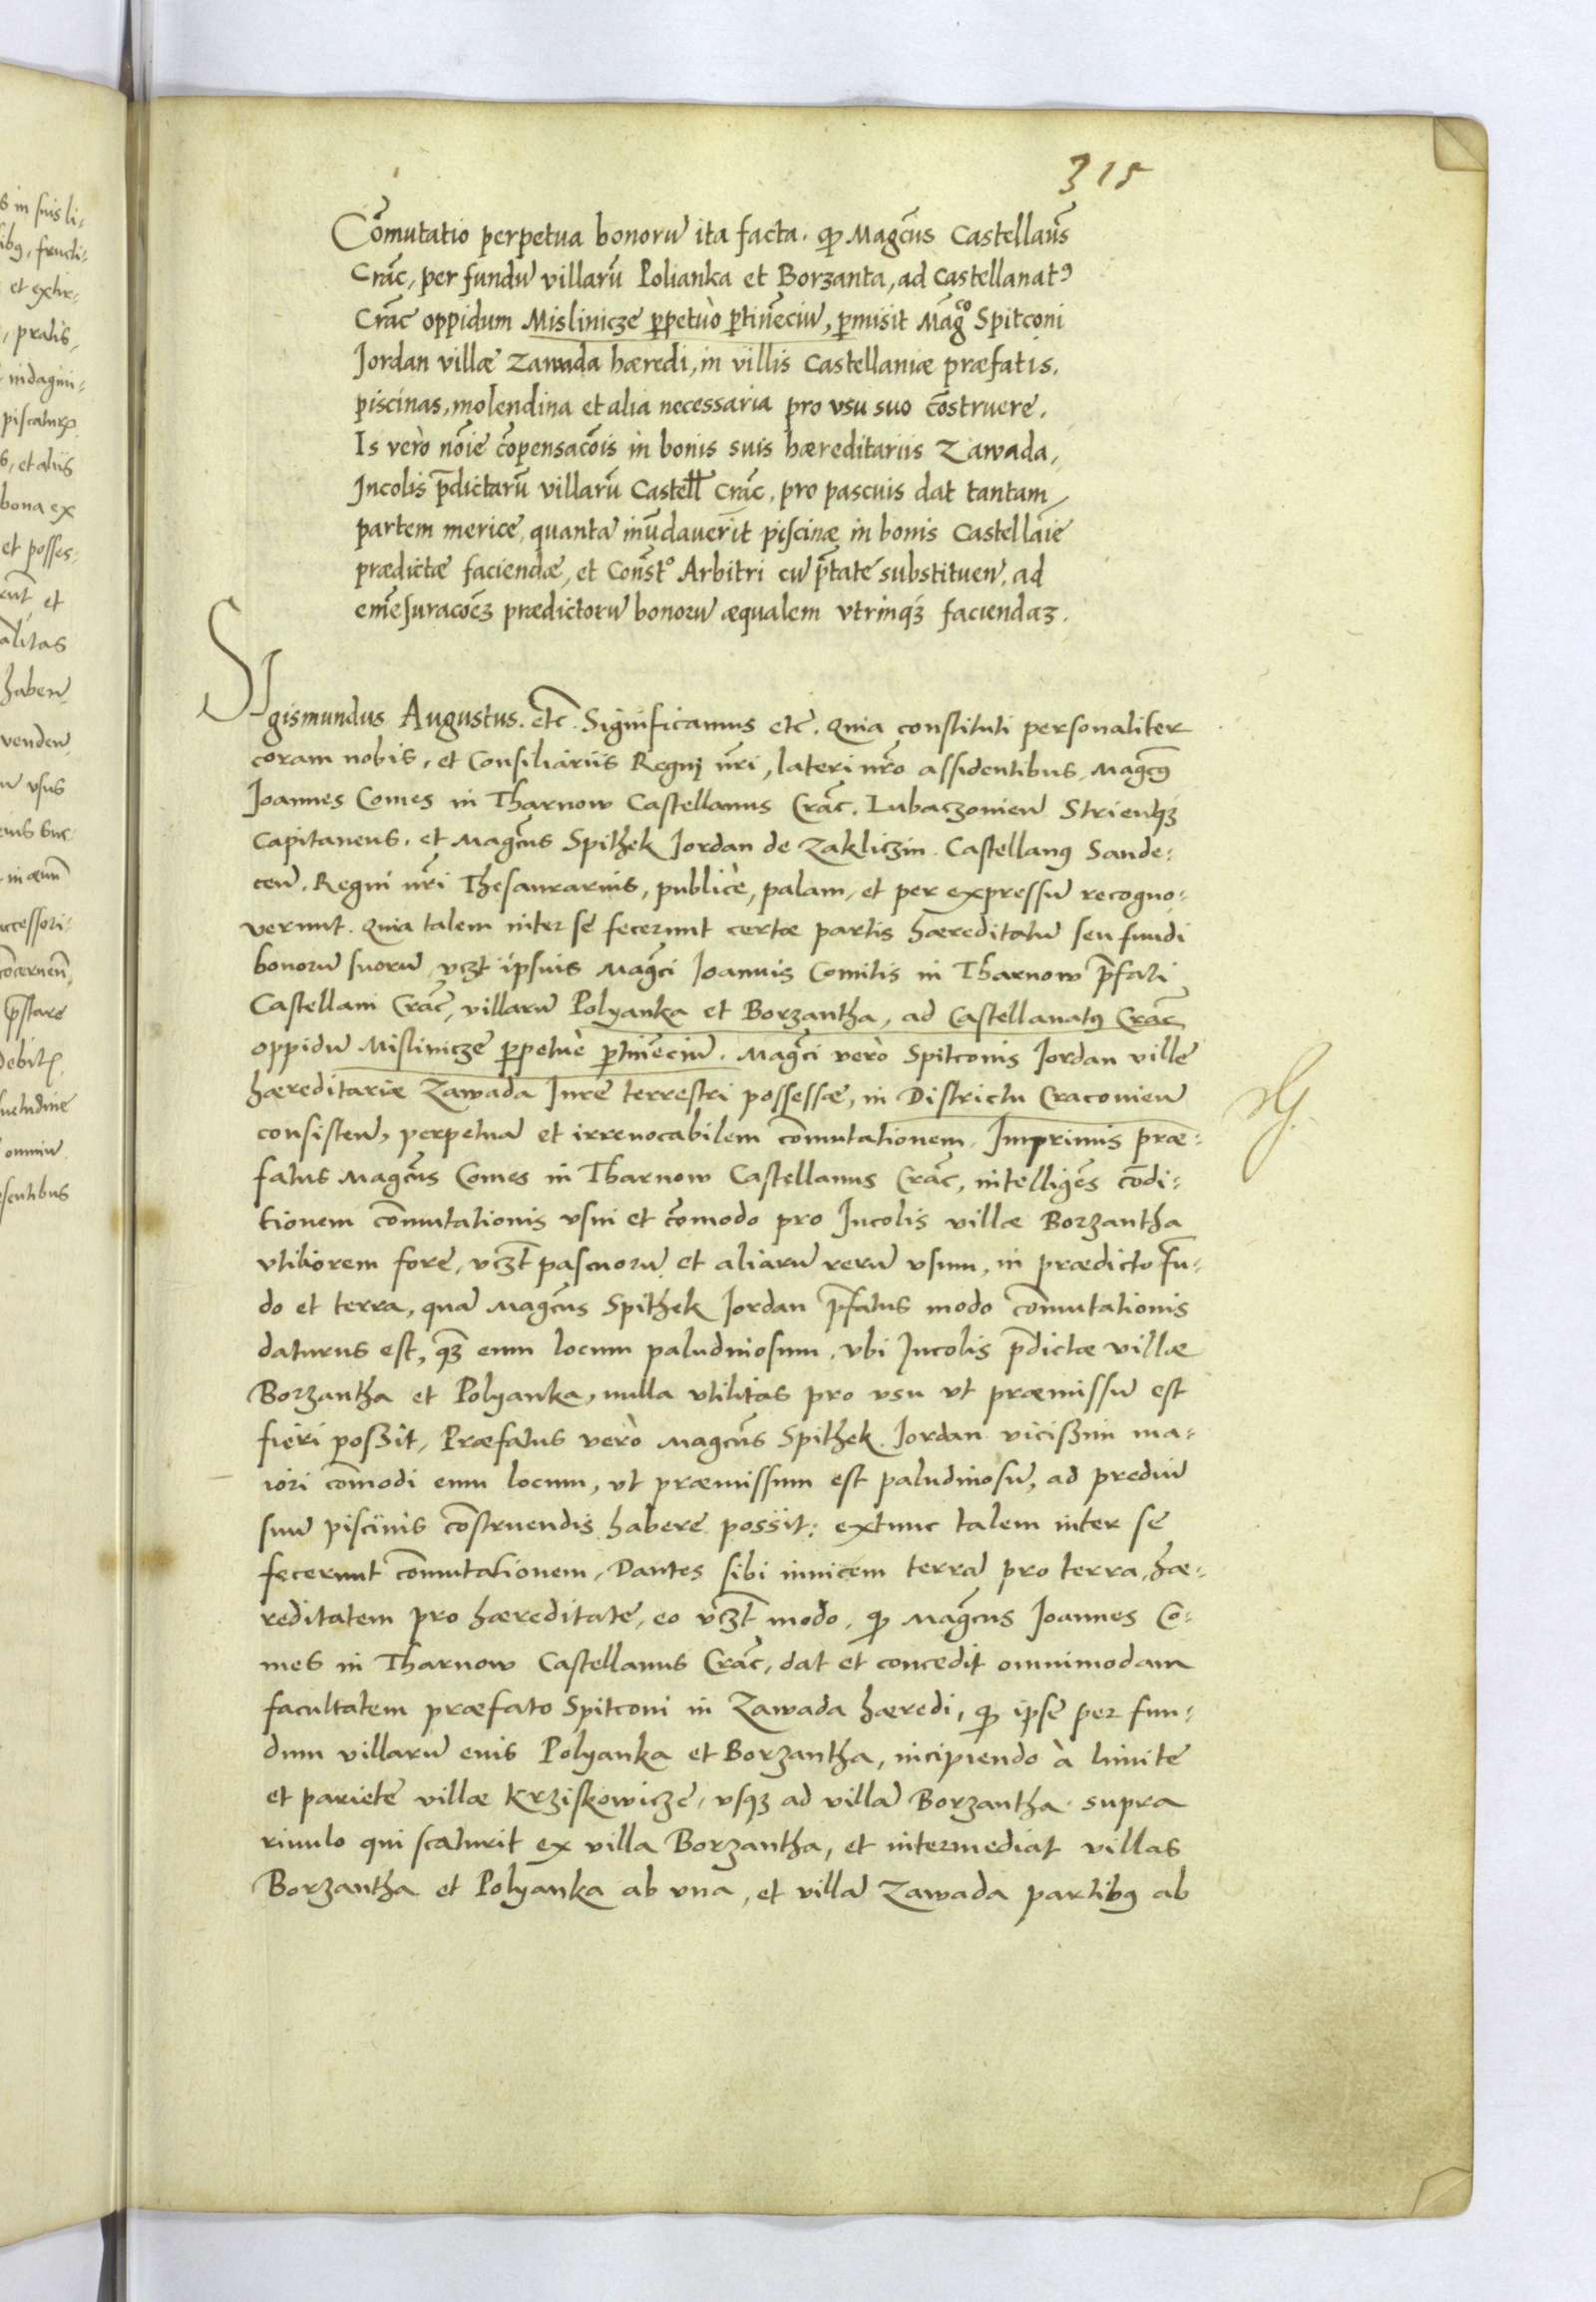 315
Cōmutatio perpetua bonorū ita facta. qp Magcūs Castellaūs
Crāc, per fundū villarū Polianka et Borzanta, ad Castellanatꝰ
Crāc oppidum Mislinicze ꝑpetuò ꝑtinēciū, ꝑmisit Māgco Spitconi
Jordan villæ Zawada hæredi, in villis Castellaniæ præfatis.
piscinas, molendina et alia necessaria pro vsu suo cōstruere.
Is verò nōie cōpensacōis in bonis suis hæreditariis Zawada,
Incolis p̄dictarū villarū Castell Crāc, pro pascuis dat tantam,
partem merice, quantā inūdauerit piscinæ in bonis Castellāie
prædictæ faciendæ, et Const° Arbitri cū p̄tate substituen̄. ad
emēsuracōēꝫ prædictorū bonorū æqualem vtrinqꝫ faciendaꝫ.
SIgismundus Augustus. etc̄. Significamus etc̄. Quia constituti personaliter
coram nobis, et Consiliariis Regni nr̄i, lateri nr̄o assidentibus. Magcꝰ
Joannes Comes in Tharnow Castellanus Crāc. Lubaczonien̄ Strienqꝫ
Capitaneus, et Magcūs Spithek Jordan de Zakliczin. Castellanꝰ Sande:
cen̄. Regni nr̄i Thesaurarius, publicè, palam, et per expressū recogno:
verunt. Quia talem inter se fecerunt certæ partis hæreditatū seu fundi
bonorū suorū, vcꝫt ipsuis Magci Joannis Comitis in Tharnow p̄fati
Castellani Crāc, villarū Polyanka et Borzantha, ad Castellanatꝰ Crāc
oppidū Mislinicze ꝑpetuè ꝑtinēciū. Magci verò Spitconis Jordan ville
hæreditariæ Zawada Jure terrestri possessæ, in Districtu Cracouien̄
consisten̄, perpetuā et irreuocabilem cōmutationem. Imprimis præ:
fatus Magcūs Comes in Tharnow Castellanus Crāc, intelligēs cōdi:
tionem cōmutationis vsui et cōmodo pro Incolis villæ Borzantha
vtiliorem fore, vcꝫt pascuorū et aliarū rerū vsum, in prædicto fu:
do et terra, quā Magcūs Spithek Jordan p̄fatus modo cōmutationis
daturus est, qꝫ eum locum paludinosum, vbi Incolis p̄dictæ villæ
Borzantha et Polyanka, nulla vtilitas pro vsu vt præmissū est
fieri poßit, Præfatus verò Magcūs Spithek Jordan vicißim ma:
iori cōmodi eum locum, vt præmissum est paludinosū, ad prediū
suū piscinis cōstruendis habere possit: extunc talem inter se
fecerunt cōmutationem, Dantes sibi inuicem terrā pro terra, hæ:
reditatem pro hæreditate, eo vcꝫt modo, qp Magcūs Joannes Co:
mes in Tharnow Castellanus Crāc, dat et concedit omnimodam
facultatem præfato Spitconi in Zawada hæredi, qp ipse per fun:
dum villarū euis Polyanka et Borzantha, incipiendo à limite
et pariete villæ Krziskowicze, vsqꝫ ad villā Borzantha supra
riuulo qui scaturit ex villa Borzantha, et intermediat villas
Borzantha et Polyanka ab vna, et villā Zawada partibꝰ ab